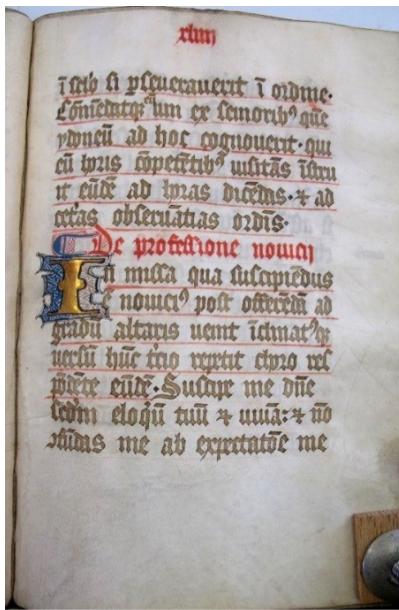 xlviij
ī sclo si pseuerauerit ī ordine.
Cōmēdatqȝ eūm uni ex seniorib⁹ quē
ydoneū ad hoc cognouerit. qui
eū horis cōpetētib⁹ uisitās īstru
it eūdē ad horas dicēdas. ⁊ ad
cet̃as obseruātias ordīs.
De professione nouicij
In missa qua suscipiēdus
ē nouici⁹ post offerēm ad
gradū altaris uenit īclinat⁹qȝ
uersū hūc t̃cio repetit choro res
pōdēte eūdē. Suscipe me dñe
scdm eloqū tuū ⁊ uiuā: ⁊ nō
ↄfūdas me ab expectatōe me